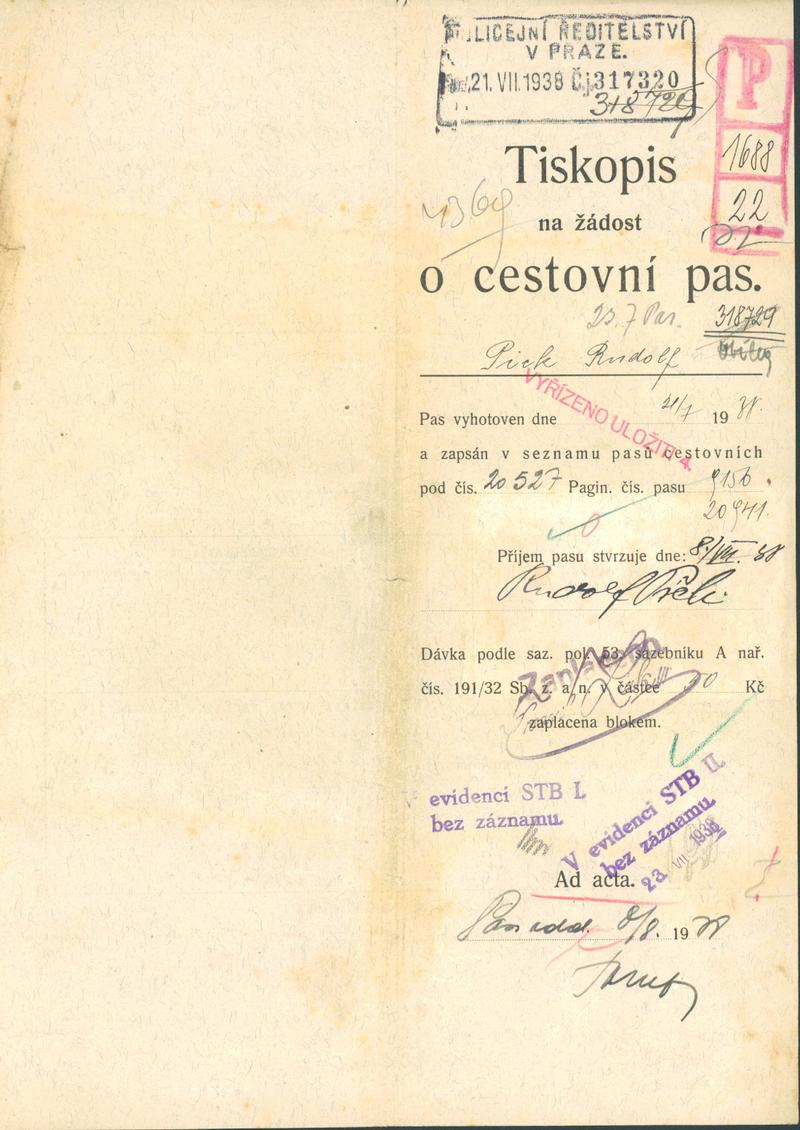 POLICEJNÍ ŘEDITELSTVÍ
V PRAZE.
21. VII. 1938 Čj 317320
318729
P
1688
22
Tiskopis
na žádost
o cestovní pas.
23. 7 Pas.
318729
Pick Rudolf
VYŘÍZENO ULOŽITI 4.
Pas vyhotoven dne 21/7 1938.
a zapsán v seznamu pasů cestovních
pod čís. 20527 Pagin. čís. pasu 9156
20941.
Příjem pasu stvrzuje dne: 8/VIII. 38
Rudolf Pick.
Dávka podle saz. pol. 53. sazebníku A nař.
čís. 191/32 Sb. z. a n. v částce 50 Kč
Zaplaceno
zaplacena blokem.
V evidenci STB I.
bez záznamu.
V evidenci STB II.
bez záznamu.
23. VII 1938
Ad acta.
8/8. 1938